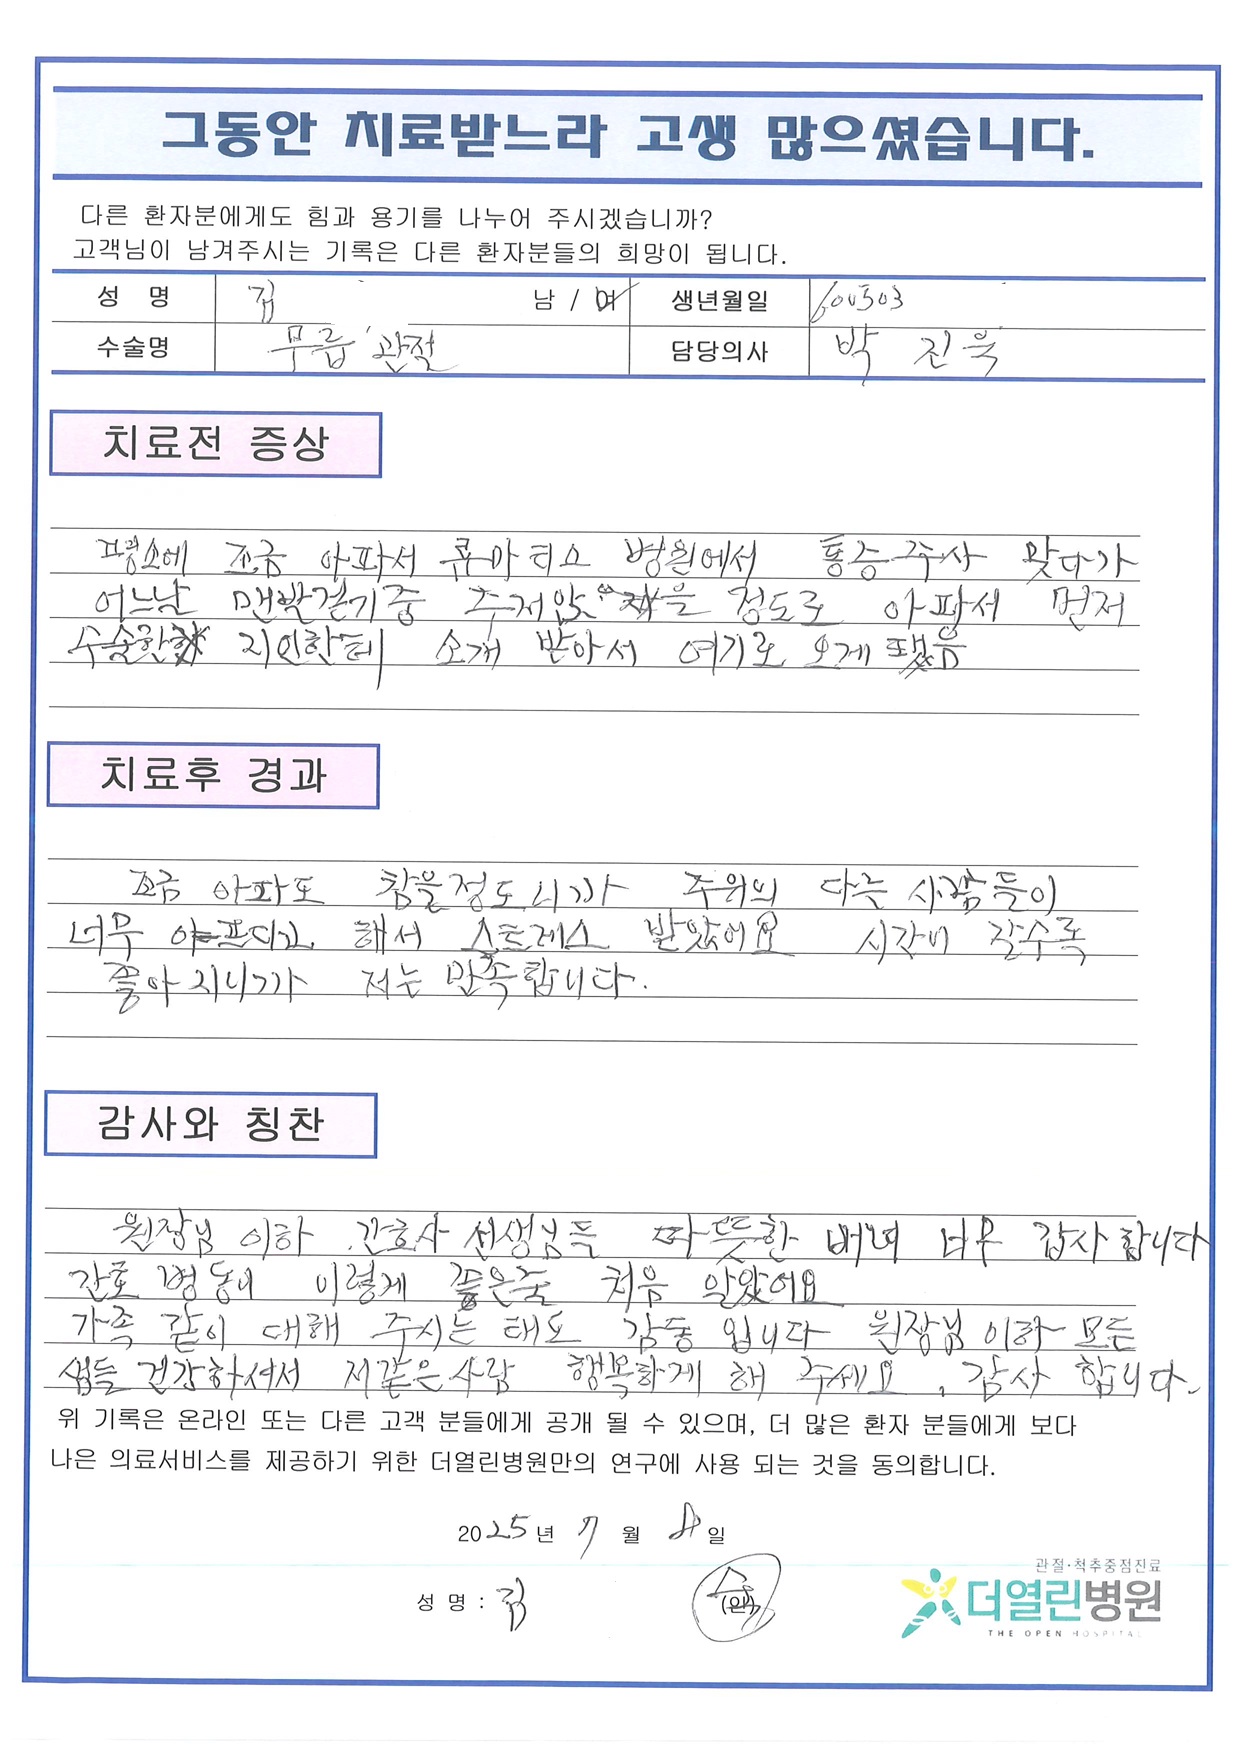 그동안 치료받느라 고생 많으셨습니다.
다른 환자분에게도 힘과 용기를 나누어 주시겠습니까?
고객님이 남겨주시는 기록은 다른 환자분들의 희망이 됩니다.
성 명 김 남 / 여 생년월일 600503
수술명 무릎 관절 담당의사 박 진욱
치료전 증상
평소에 조금 아파서 류마티스 병원에서 통증주사 맞다가
어느날 맨발걷기중 주저앉을 정도로 아팡서 먼저
수술한 지인한테 소개 받아서 여기로 오게 됐음
치료후 경과
조금 아파도 참을정도니가 주위의 다른 사람들이
너무 아프다고 해서 스트레스 받았어요 시간이 갈수록
좋아지니가 저는 만족합니다.
감사와 칭찬
원장님 이하 간호사 선생님들 따뜻한 배려 너무 감사합니다
간호 병동이 이렇게 좋은줄 처음 알았어요
가족 같이 대해 주시는 태도 감동 입니다 원장님 이하 모든
샘들 건강하셔서 저같은 사람 행복하게 해 주세요. 감사 합니다.
위 기록은 온라인 또는 다른 고객 분들에게 공개 될 수 있으며, 더 많은 환자 분들에게 보다
나은 의료서비스를 제공하기 위한 더열린병원만의 연구에 사용 되는 것을 동의합니다.
2025년 7월 8일
성 명 : 김 (인)
관절·척추중점진료
더열린병원
THE OPEN HOSPITAL